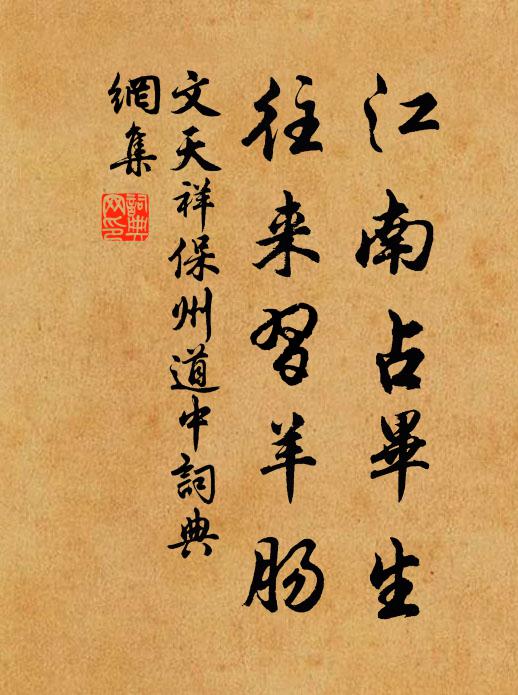 江南占畢生
往来習羊肠
文天祥保州道中詞典
網集
詞典网印